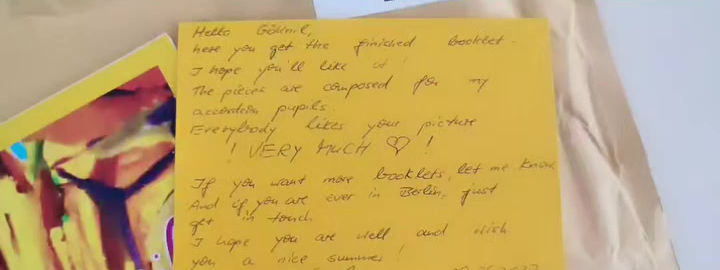 Hello Göknil,
here you get the finished booklet.
I hope you'll like it!
The pieces are composed for my
accordion pupils.
Everybody likes your picture
! VERY MUCH ♡ !
If you want more booklets, let me know.
And if you are ever in Berlin, just
get in touch
I hope you are well and wish
you a nice summer!